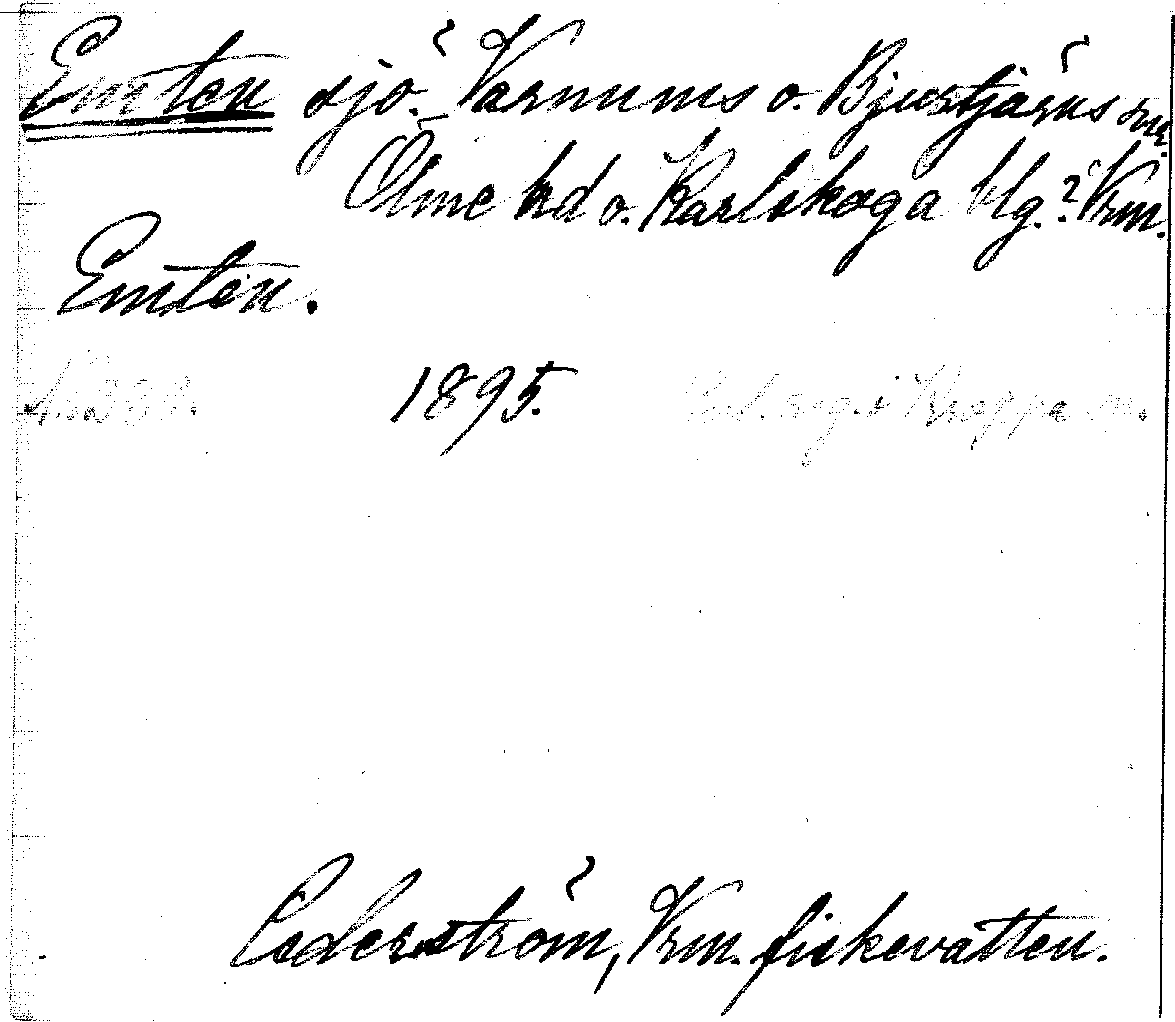 Emten sjö. Varnums o. Bjurtjärns snr.
Ölme hd o. Karlskoga blg.? Vrm.
Emten.
1895. Kroppa
Cederström, Vrm. fiskevatten.